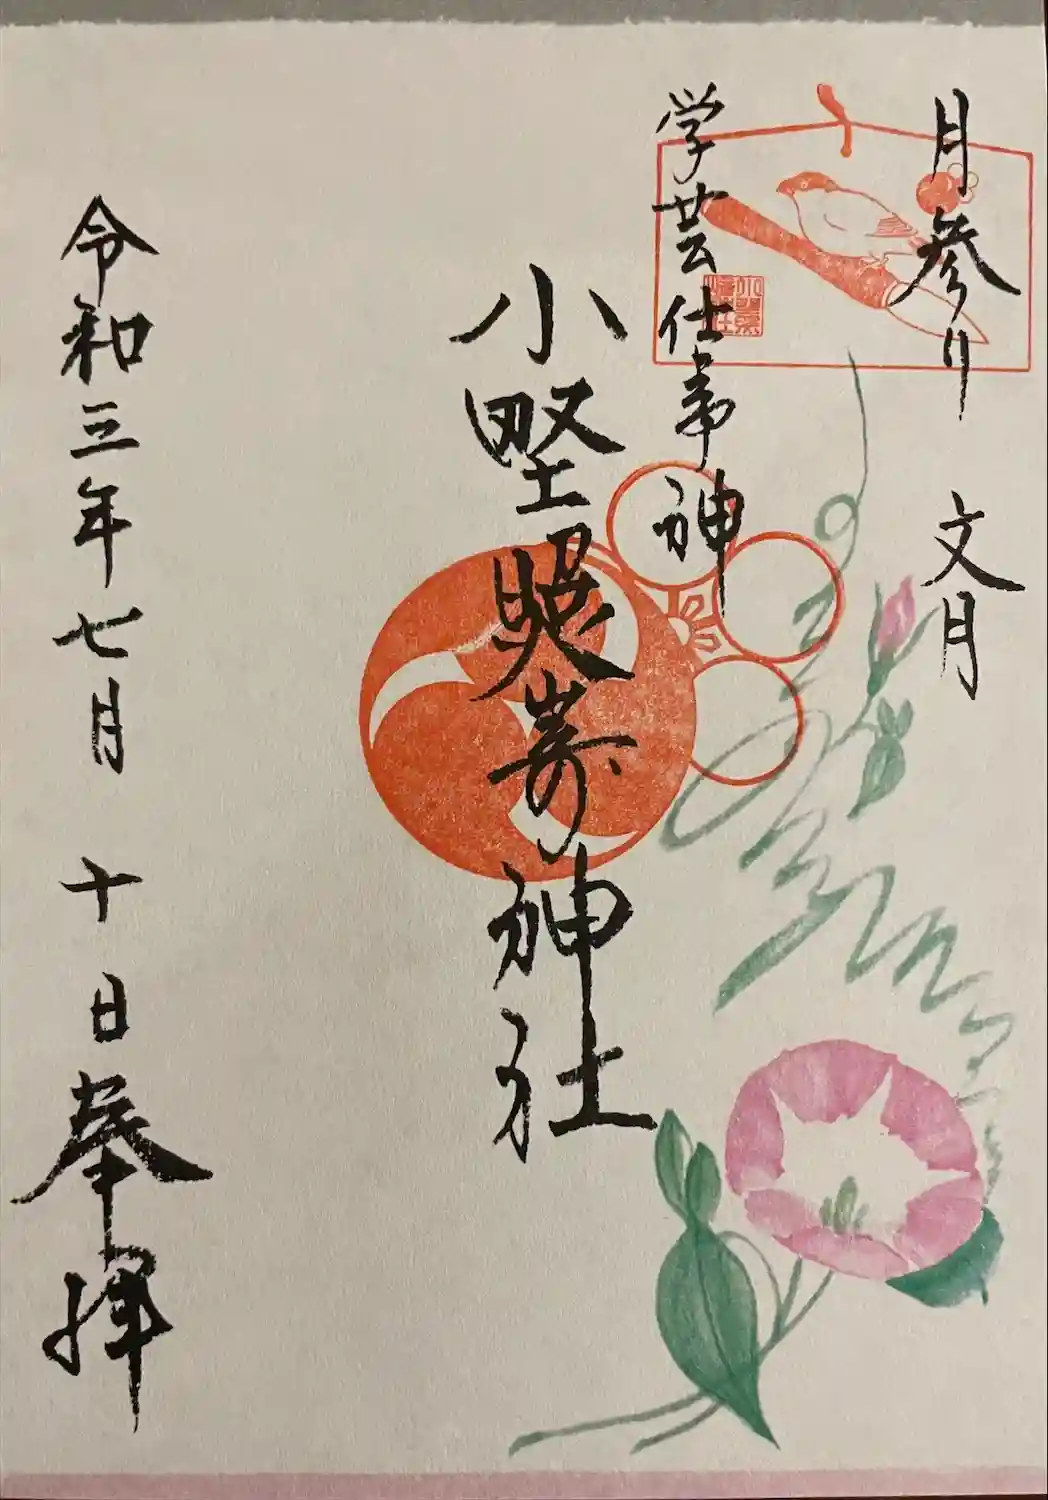 月参り 文月
学芸仕事神
小野照崎神社
令和三年七月 十日
奉拝